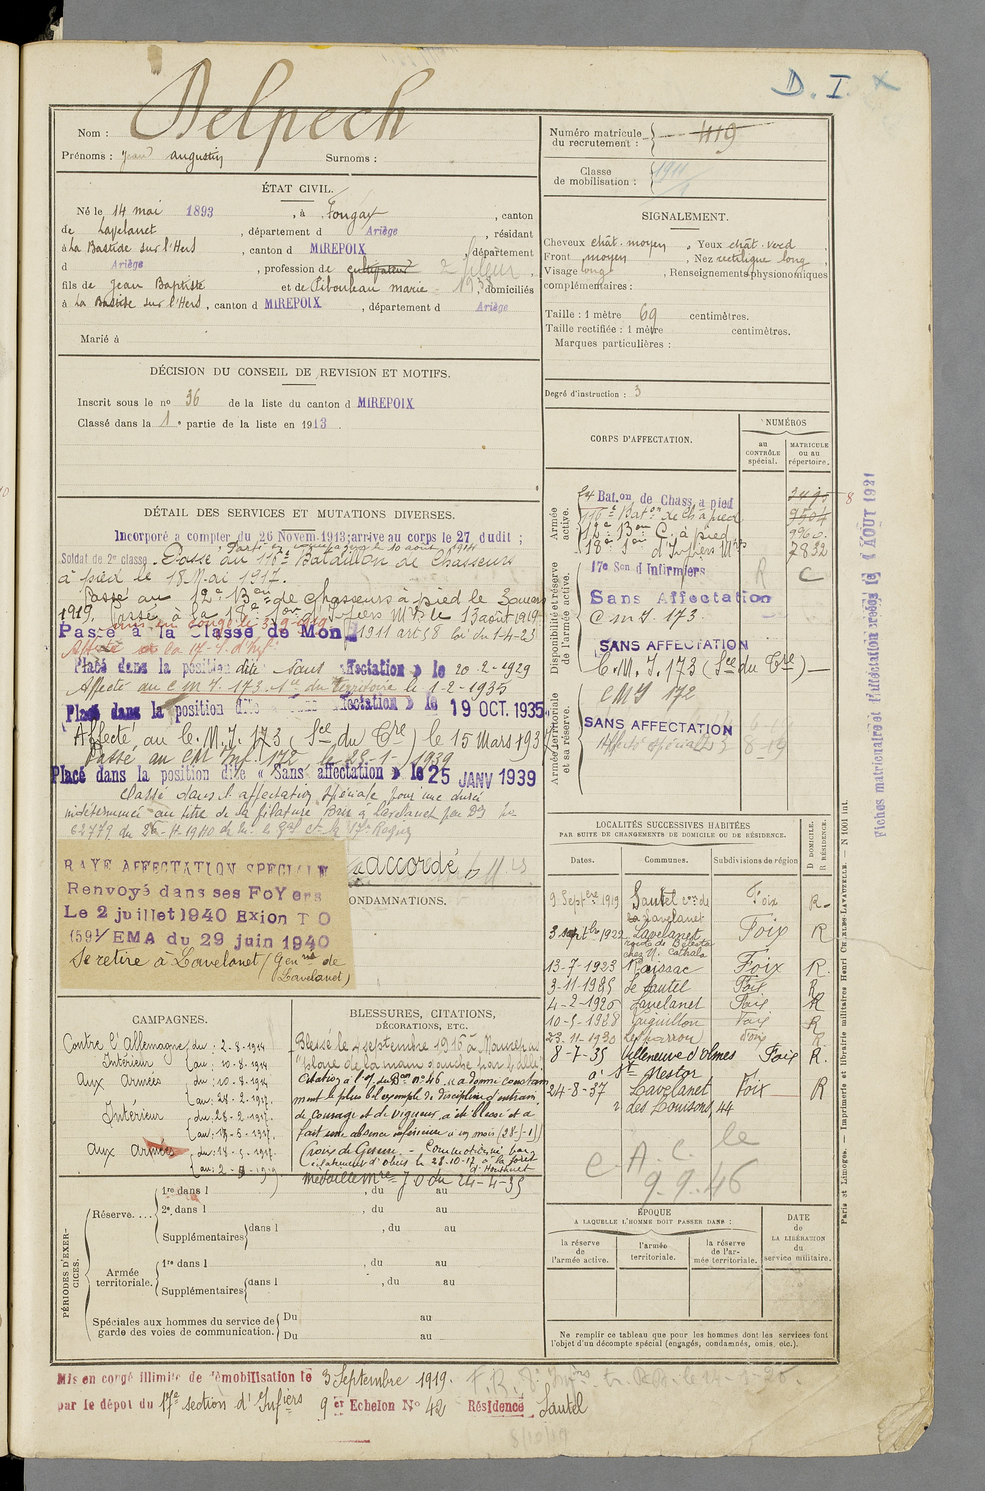 D. I. X
Nom : Delpech
Prénoms : Jean Augustin Surnoms :
ÉTAT CIVIL.
Né le 14 mai 1893, à Fougax, canton
de Lavelanet, département d Ariège, résidant
à La Bastide sur l'Hers, canton d MIREPOIX, département
d Ariège, profession de cultivateur
fils de Jean Baptiste et de Pibouleau marie 1938 domiciliés
à La Bastide sur l'Hers, canton d MIREPOIX, département d Ariège
Marié à
DÉCISION DU CONSEIL DE REVISION ET MOTIFS.
Inscrit sous le no 36 de la liste du canton d MIREPOIX
Classé dans la 1e partie de la liste en 1913.
DÉTAIL DES SERVICES ET MUTATIONS DIVERSES.
Incorporé a compter du 26 Novem. 1913; arrive au corps le 27 dudit ;
Soldat de 2e classe. Parti en campagne le 10 août 1914
Passé au 116e Bataillon de Chasseurs
à pied le 18 Mai 1917.
Passé au 12e Bon de Chasseurs à pied le 3 mars
1919. Passé à la 18e Son d'Infiers Mres le 13 août 1919.
mis en congé le 3-9-1919
Passé à la Classe de Mon 1911 art 58 loi du 1-4-23
Affecté à la 17e S. d'Inf.
Placé dans la position dite Sans affectation » le 20-2-1929
Affecté au C M I. 173. Sce du Territoire le 1-2-1935
Placé dans la position dite Sans affectation » le 19 OCT. 1935
Affecté au C. M. I. 173 (Sce du Cre) le 15 Mars 1937
Passé au CM Inf. 172 le 25-1-1939
Placé dans la position dite « Sans affectation » le 25 JANV 1939
Classé dans l'affectation spéciale pour une durée
indéterminée au titre de la filature à Lavelanet
accordé
RAYE AFFECTATION SPECIALE
Renvoyé dans ses FoYers
Le 2 juillet 1940 Exion T O
(591/EMA du 29 juin 1940
Se retire à Lavelanet (Genrie de
Lavelanet)
ONDAMNATIONS.
CAMPAGNES.
Contre l'Allemagne du : 2-8-1914
Intérieur au : 10-8-1914
aux Armées du : 10-8-1914
au : 28-2-1917.
Intérieur du : 28-2-1917.
au : 17-5-1917.
aux armées du : 18-5-1917.
au : 2-9-1919
BLESSURES, CITATIONS,
DÉCORATIONS, ETC.
Blessé le 4 septembre 1916 à Maurepas
"plaie de la main gauche par balle"
Citation à l'O/ du Bon no 46 "a donné constam
ment le plus bel exemple de discipline d'entrain
de courage et de vigueur, a été blessé et a
fait une absence inférieure à un mois (28-1-18)
Croix de Guerre. - Commotionné par
éclatement d'obus le 23-10-17 à la forêt
d'Houthulst
Médaille Mre J O du 24-4-35
PÉRIODES D'EXERCICES.
Réserve.... 1re dans l , du au
2e dans l , du au
Supplémentaires dans l , du au
Armée territoriale. 1re dans l , du au
Supplémentaires dans l , du au
Spéciales aux hommes du service de garde des voies de communication. Du au
Du au
Numéro matricule du recrutement : 419
Classe de mobilisation : 1911
1
SIGNALEMENT.
Cheveux chât. moyen, Yeux chât. verd
Front moyen, Nez rectiligne long,
Visage long, Renseignements physionomiques
complémentaires :
Taille : 1 mètre 69 centimètres.
Taille rectifiée : 1 mètre centimètres.
Marques particulières :
Degré d'instruction : 3
CORPS D'AFFECTATION.
NUMÉROS
au CONTRÔLE spécial.
MATRICULE ou au répertoire.
Armée active.
24 Bat.on de Chass à pied 8
116e Baton de Ch à pied 9504
12e Bon C. à pied
18e Son d'Infiers Mres 7832
Disponibilité et réserve de l'armée active.
17e Son d'Infirmiers R C
Sans Affectation
C m I. 173.
SANS AFFECTATION
C. M. I. 173 (Sce du Cre)
Armée territoriale et sa réserve.
CMI 172
SANS AFFECTATION
Affecté spéciale
LOCALITÉS SUCCESSIVES HABITÉES
PAR SUITE DE CHANGEMENTS DE DOMICILE OU DE RÉSIDENCE.
Dates. Communes. Subdivisions de région
D DOMICILE. R RÉSIDENCE.
9 Septbre 1919 Sautel cne de Foix R.
Lavelanet
3 septbre 1922 Lavelanet Foix R
route de Bélesta
chez M. Cathala
13-7-1923 Raissac Foix R.
3-11-1925 Le Sautel Foix R
4-2-1926 Lavelanet Foix R
10-5-1928 L'aiguillon Foix R
23.11-1930 Lesparrou Foix R.
8-7-35 Villeneuve d'Olmes Foix R.
à St Nestor
24-8-37 Lavelanet Foix R
r des Boussons, 44
C. A. C. le
9.9.46
ÉPOQUE
A LAQUELLE L'HOMME DOIT PASSER DANS :
la réserve de l'armée active.
l'armée territoriale.
la réserve de l'armée territoriale.
DATE de LA LIBÉRATION du service militaire.
Ne remplir ce tableau que pour les hommes dont les services font
l'objet d'un décompte spécial (engagés, condamnés, omis, etc.).
Fiches matriculaire et d'affectation créées le 1 AOUT 1921
Paris et Limoges. — Imprimerie et librairie militaires Henri CHARLES-LAVAUZELLE. — N 1001 int.
Mis en congé illimité de démobilisation le 3 Septembre 1919.
par le dépôt du 17e section d'Infiers 9er Echelon No 42 Résidence Sautel
8/10/19